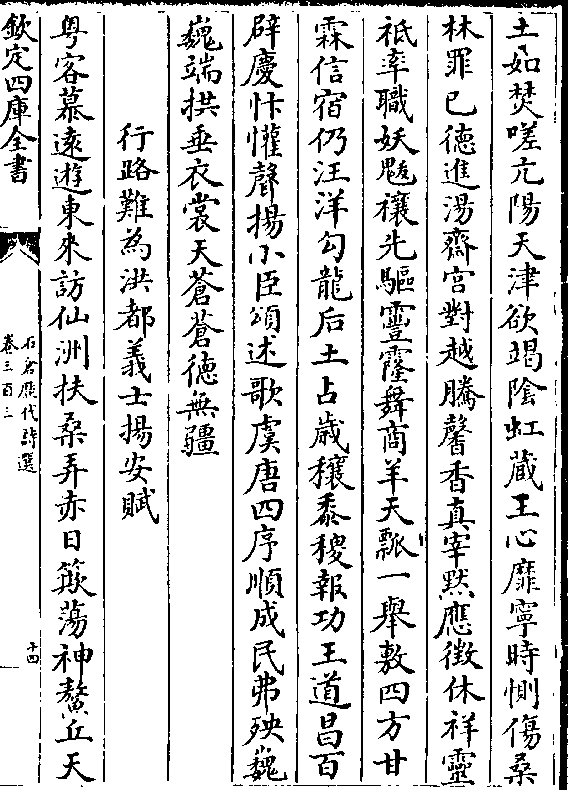 土如焚嗟亢陽天津欲竭陰虹藏王心靡寧時惻傷桑
林罪已德進湯齋宮對越騰馨香真宰黙應徴休祥靈
祗率職妖魃禳先驅靈霳舞商羊天瓢一舉敷四方甘
霖信宿仍汪洋勾龍后土占歳穰黍稷報功王道昌百
辟慶忭懽聲揚小臣頌述歌虞唐四序順成民弗殃巍
巍端拱垂衣裳天蒼蒼德無疆
行路難為洪都義士揚安賦
粤客慕遠遊東來訪仙洲扶桑弄赤日簸蕩神鰲丘天
欽定四庫全書
石倉歴代詩選
卷三百三
十四